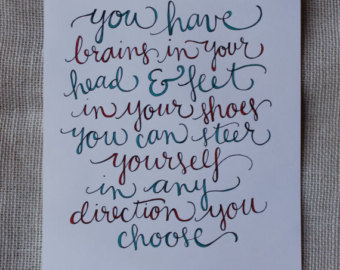 you have
brains in your
head & feet
in your shoes
you can steer
yourself
in any
direction you
choose